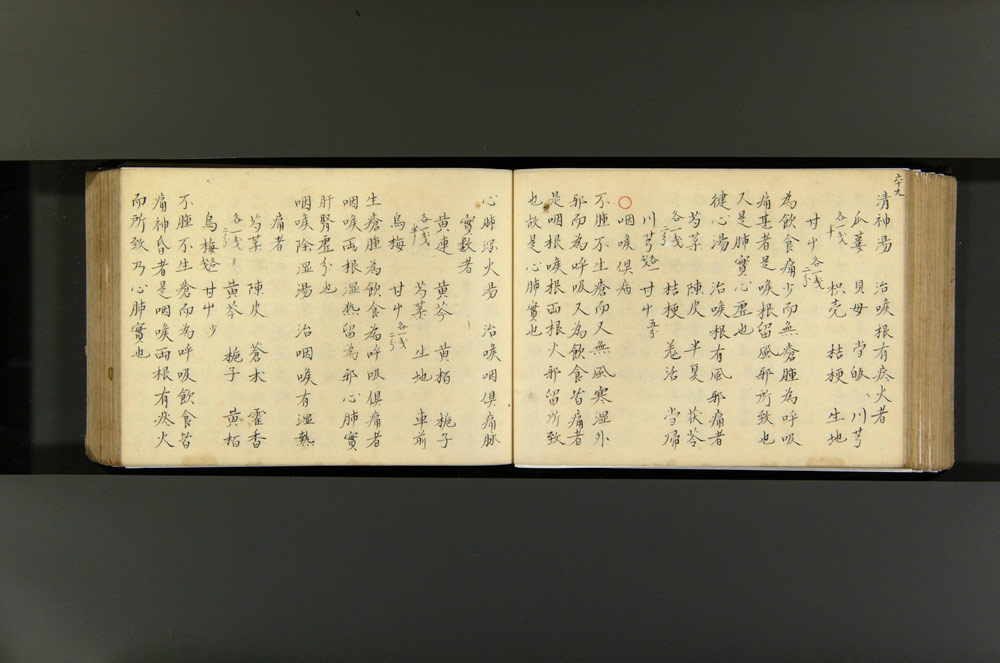 六十九
清神湯 治喉根有痰火者
瓜蔞 貝母 当皈 川芎
各一戔半 枳壳 桔梗 生地
甘艸 各一戔二分
為飲食痛少而無瘡腫為呼吸
痛甚者是喉根留風邪所致也
又是肺實心虛也
健心湯 治喉根有風邪痛者
芍薬 陳皮 半夏 茯苓
各一戔二分 桔梗 羗活 当帰
川芎 甘艸 五分
○咽喉俱病
不腫不生瘡而又無風寒湿外
邪而為呼吸又為飲食皆痛者
是咽根喉根両根火邪留所致
也故是心肺實也
心肺瀉火湯 治喉咽俱痛脉
實数者
黄連 黄芩 黄栢 梔子
各一戔半 芍薬 生地 車前
烏梅 甘艸 各一戔二分
生瘡腫為飲食為呼吸俱痛者
咽喉両根湿熱留為邪心肺實
肝腎虛分也
咽喉除湿湯 治咽喉有湿熱
痛者
芍薬 陳皮 蒼朮 霍香
各一戔二分 黄芩 梔子 黄栢
烏梅 甘艸少
不腫不生瘡而為呼吸飲食皆
痛神昏者是咽喉両根有痰火
而所致乃心肺實也